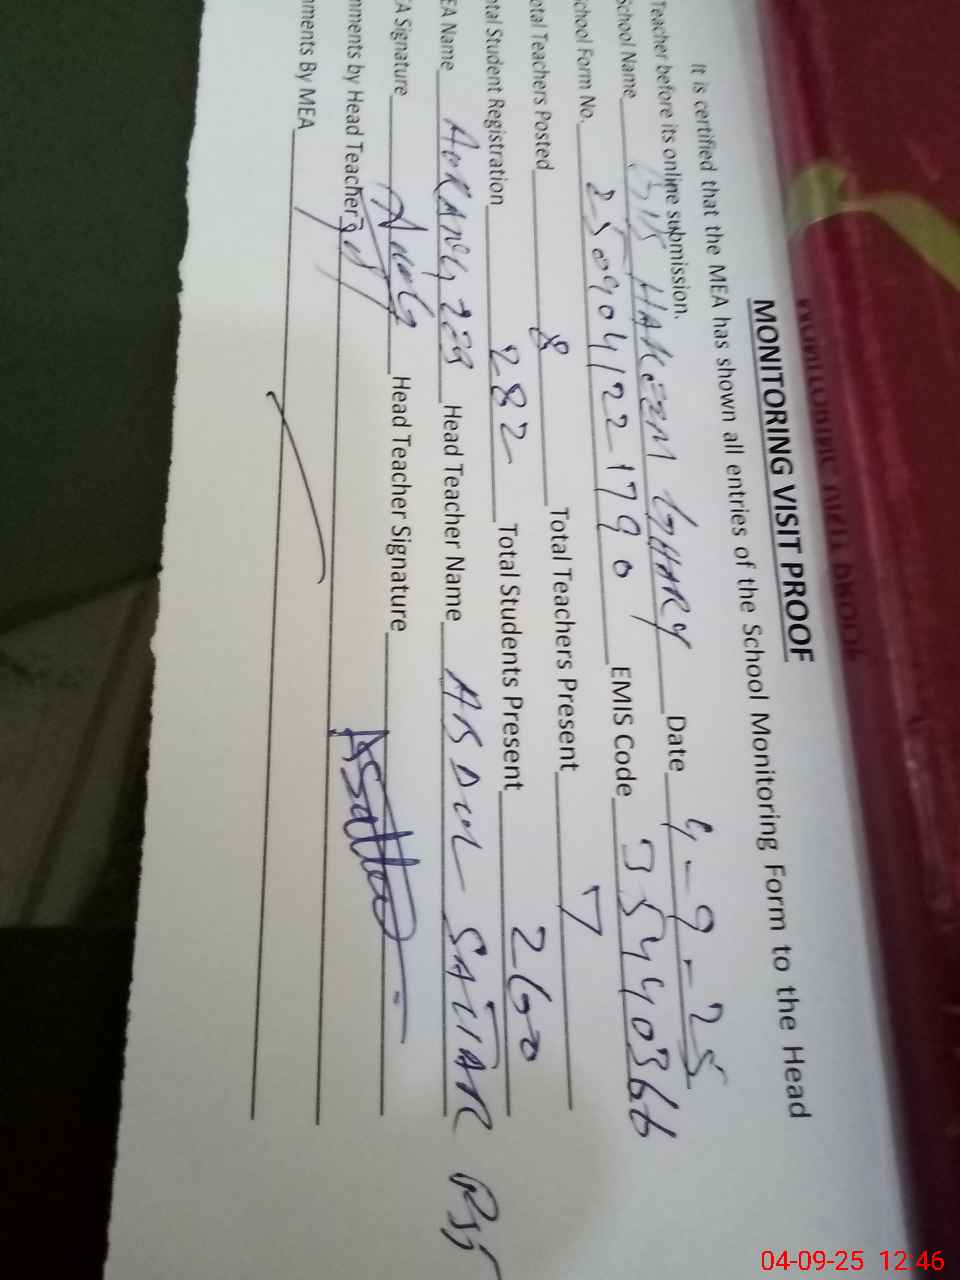 MONITORING VISIT PROOF
It is certified that the MEA has shown all entries of the School Monitoring Form to the Head
Teacher before its online submission.
School Name HAKEEM GHARY Date 4-9-25
chool Form No. 2509041221790 EMIS Code 35440366
otal Teachers Posted 8 Total Teachers Present 7
otal Student Registration 282 Total Students Present 260
EA Name AURANGZEB Head Teacher Name ABDUL SATTAR
EA Signature Head Teacher Signature ASattar
mments by Head Teacher
mments By MEA
04-09-25 12:46